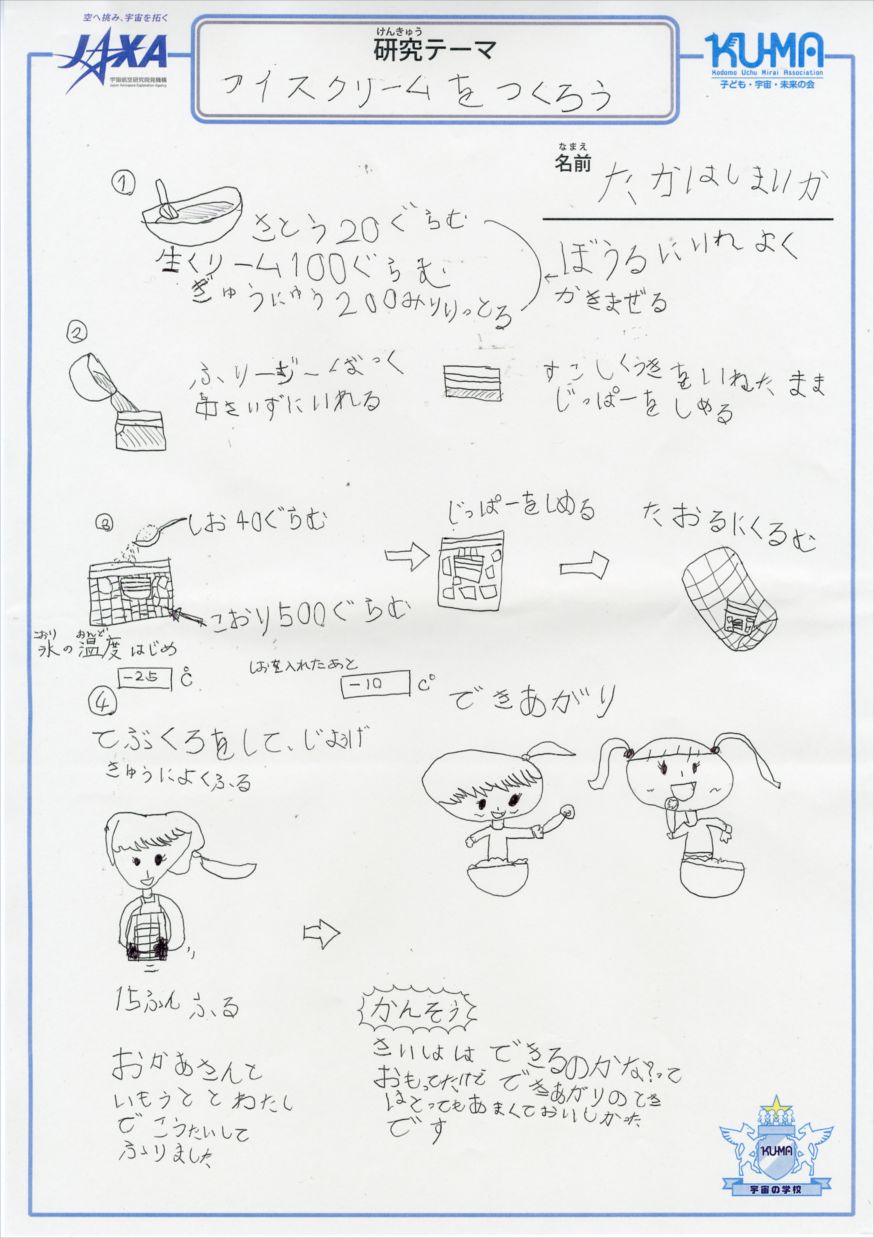 空へ挑み、宇宙を拓く
JAXA
宇宙航空研究開発機構
Japan Aerospace Exploration Agency
けんきゅう
研究テーマ
アイスクリームをつくろう
KU-MA
Kodomo Uchu Mirai Association
子ども・宇宙・未来の会
なまえ
名前
たかはしまりか
①
さとう20ぐらむ
生くりーム100ぐらむ
ぎゅうにゅう200みりりっとる
←ぼうるにいれよく
かきまぜる
②
ふりーざーばっく
中さいずにいれる
すこしくうきをいれたまま
じっぱーをしめる
③
しお40ぐらむ
こおり500ぐらむ
じっぱーをしめる
たおるにくるむ
こおり おんど
氷の温度はじめ
-25 ℃
しおを入れたあと
-10 C°
④
てぶくろをして、じょうげ
さゆうによくふる
できあがり
15ふんふる
おかあさんと
いもうととわたし
でこうたいして
ふりました
かんそう
さいしょはできるのかな?って
おもってたけどできあがりのとき
はとってもあまくておいしかった
です
KU-MA
宇宙の学校